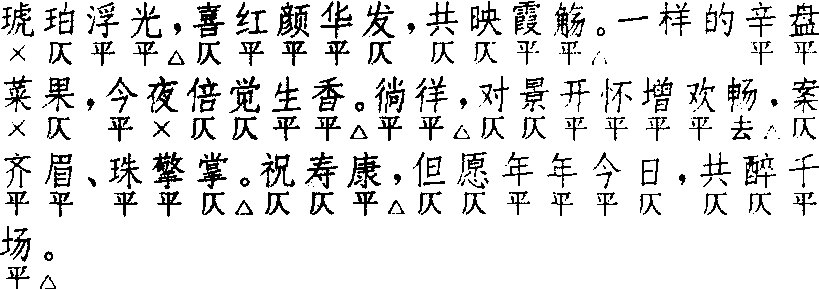 琥珀浮光,喜红颜华发,共映霞觞。一样的辛盘
× 仄 平 平 △ 仄 平 平 平 仄 仄 仄 平 平 △ 平 平
菜果,今夜倍觉生香。徜徉,对景开怀增欢畅,案
× 仄 平 × 仄 仄 平 平 △ 平 平 △ 仄 仄 平 平 平 平 去 △ 仄
齐眉、珠擎掌。祝寿康,但愿年年今日,共醉千
平 平 平 平 仄 △ 仄 仄 平 △ 仄 仄 平 平 平 仄 仄 仄 平
场。
平 △